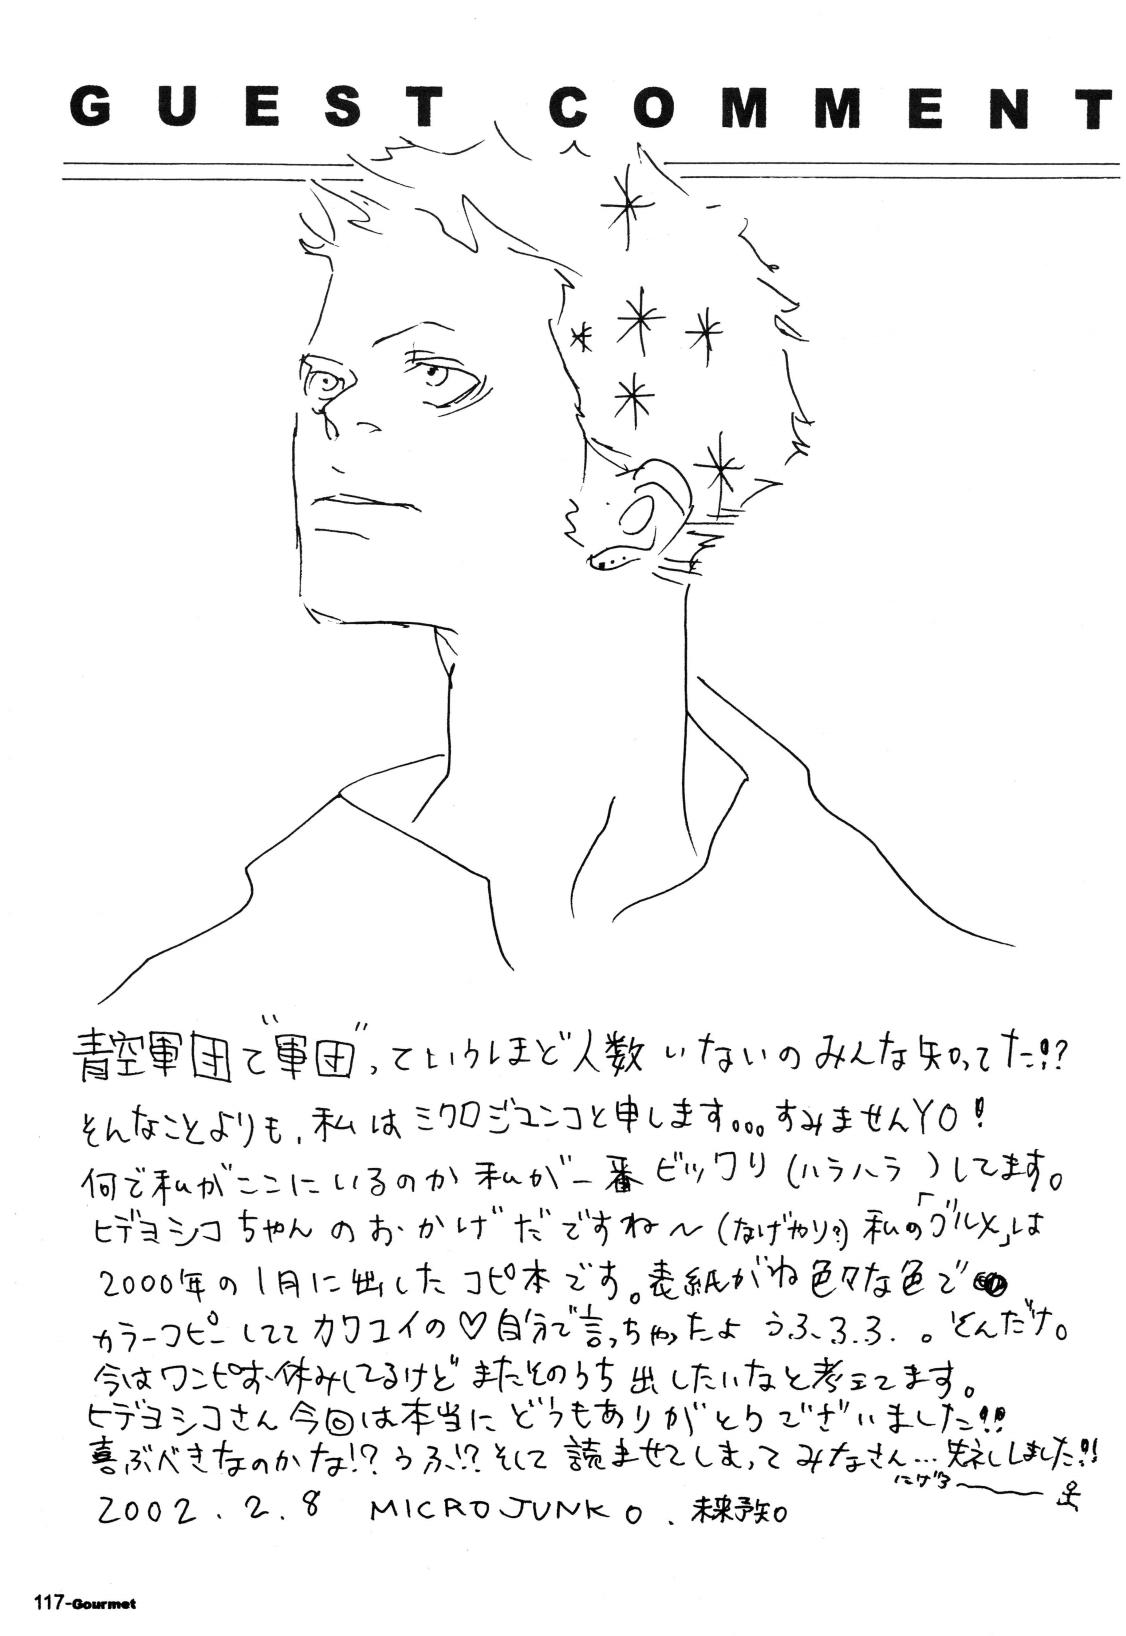 GUEST COMMENT
青空軍団で"軍団"っていうほど人数いないのみんな知ってた!?
そんなことよりも、私はミクロジュンコと申します。。。すみませんYO!
何で私がここにいるのか私が一番ビックリ(ハラハラ)してます。
ヒデヨシコちゃんのおかげだですね〜(なげやり?)私の「グルメ」は
2000年の1月に出したコピ本です。表紙がね色々な色で
カラーコピーしててカワユイの♡自分で言っちゃったようふ、3、3、。そんだけ。
今はワンピお休みしてるけどまたそのうち出したいなと考えてます。
ヒデヨシコさん今回は本当にどうもありがとうございました!!
喜ぶべきなのかな!?うふ!?そして読ませてしまってみなさん…失ネレしました!!
にげる
2002.2.8 MICROJUNKO.未来予知
117-Gourmet